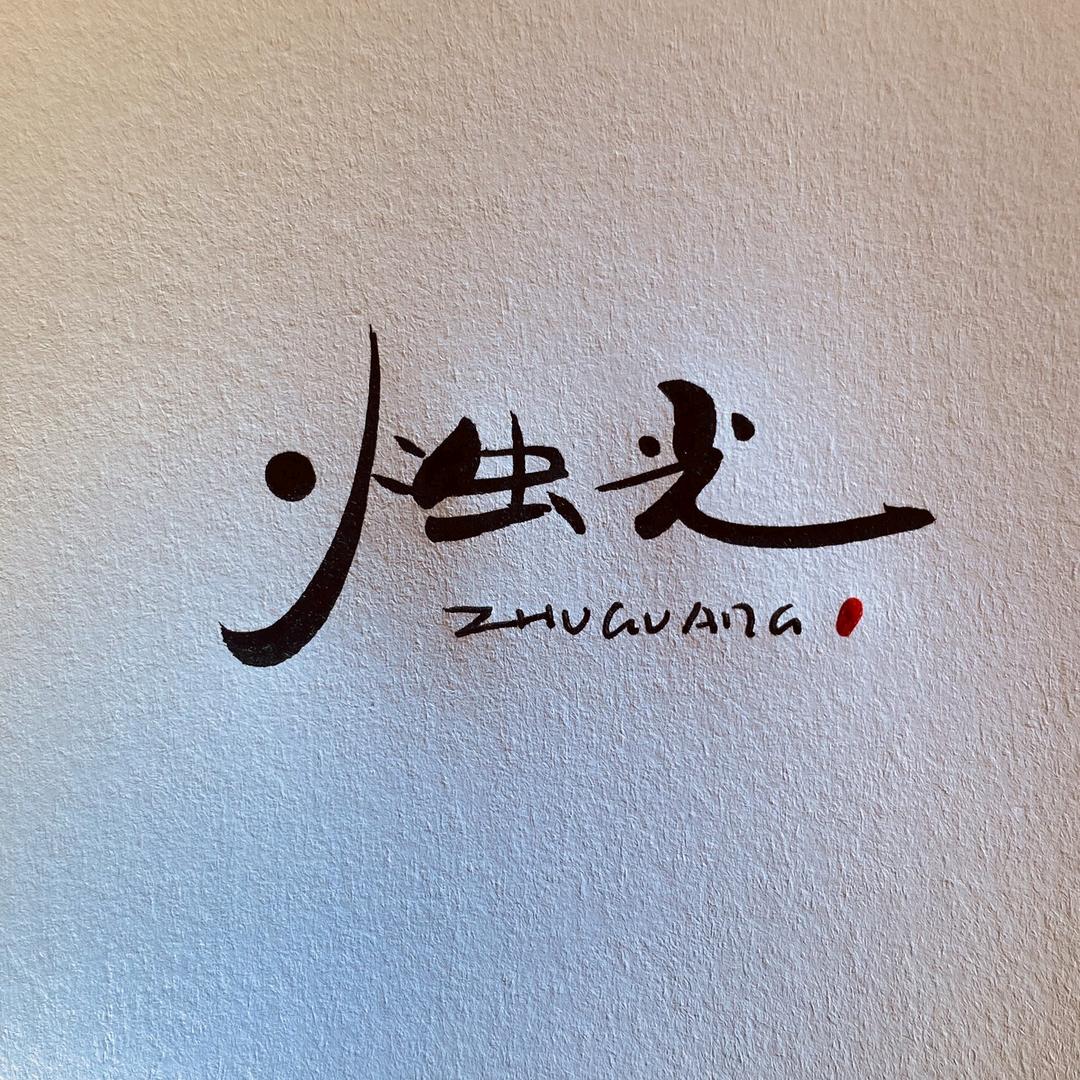 烛光
ZHUGUANG